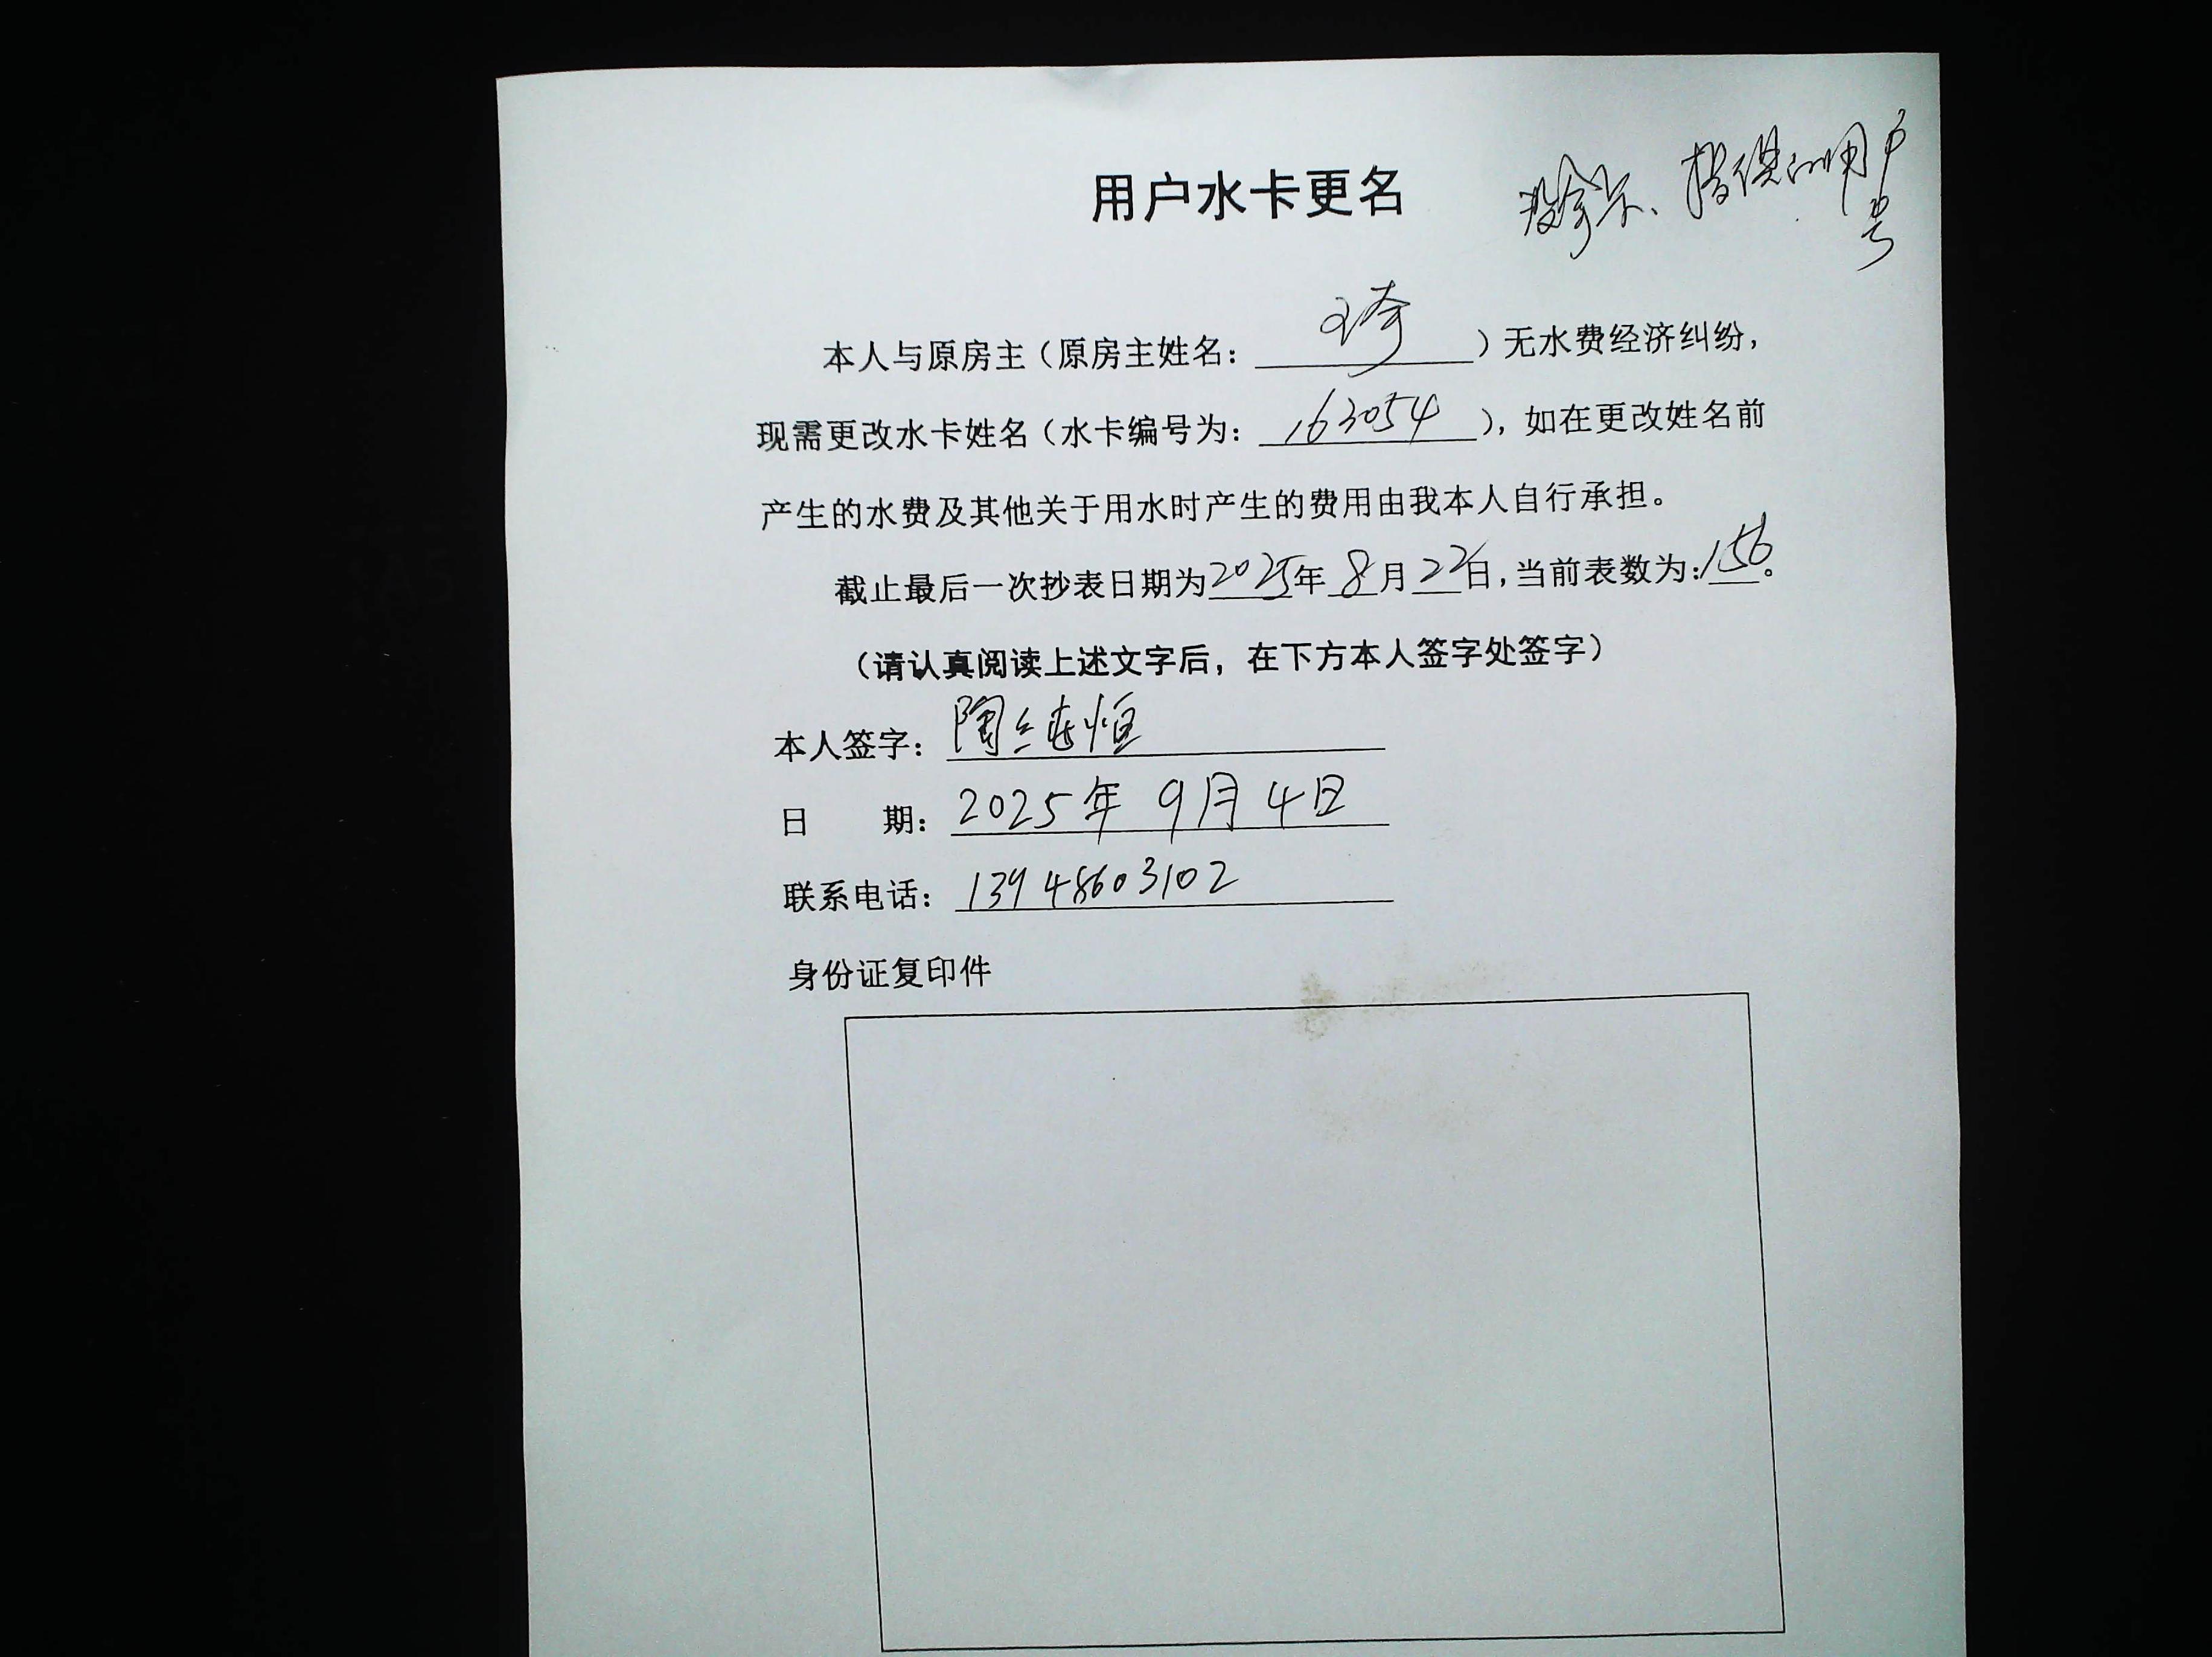 用户水卡更名
没拿卡、提供的用户号
本人与原房主（原房主姓名：）无水费经济纠纷，
现需更改水卡姓名（水卡编号为：163054），如在更改姓名前
产生的水费及其他关于用水时产生的费用由我本人自行承担。
截止最后一次抄表日期为2025年8月22日，当前表数为：156。
（请认真阅读上述文字后，在下方本人签字处签字）
本人签字：陶继恒
日 期：2025年9月4日
联系电话：13948603102
身份证复印件